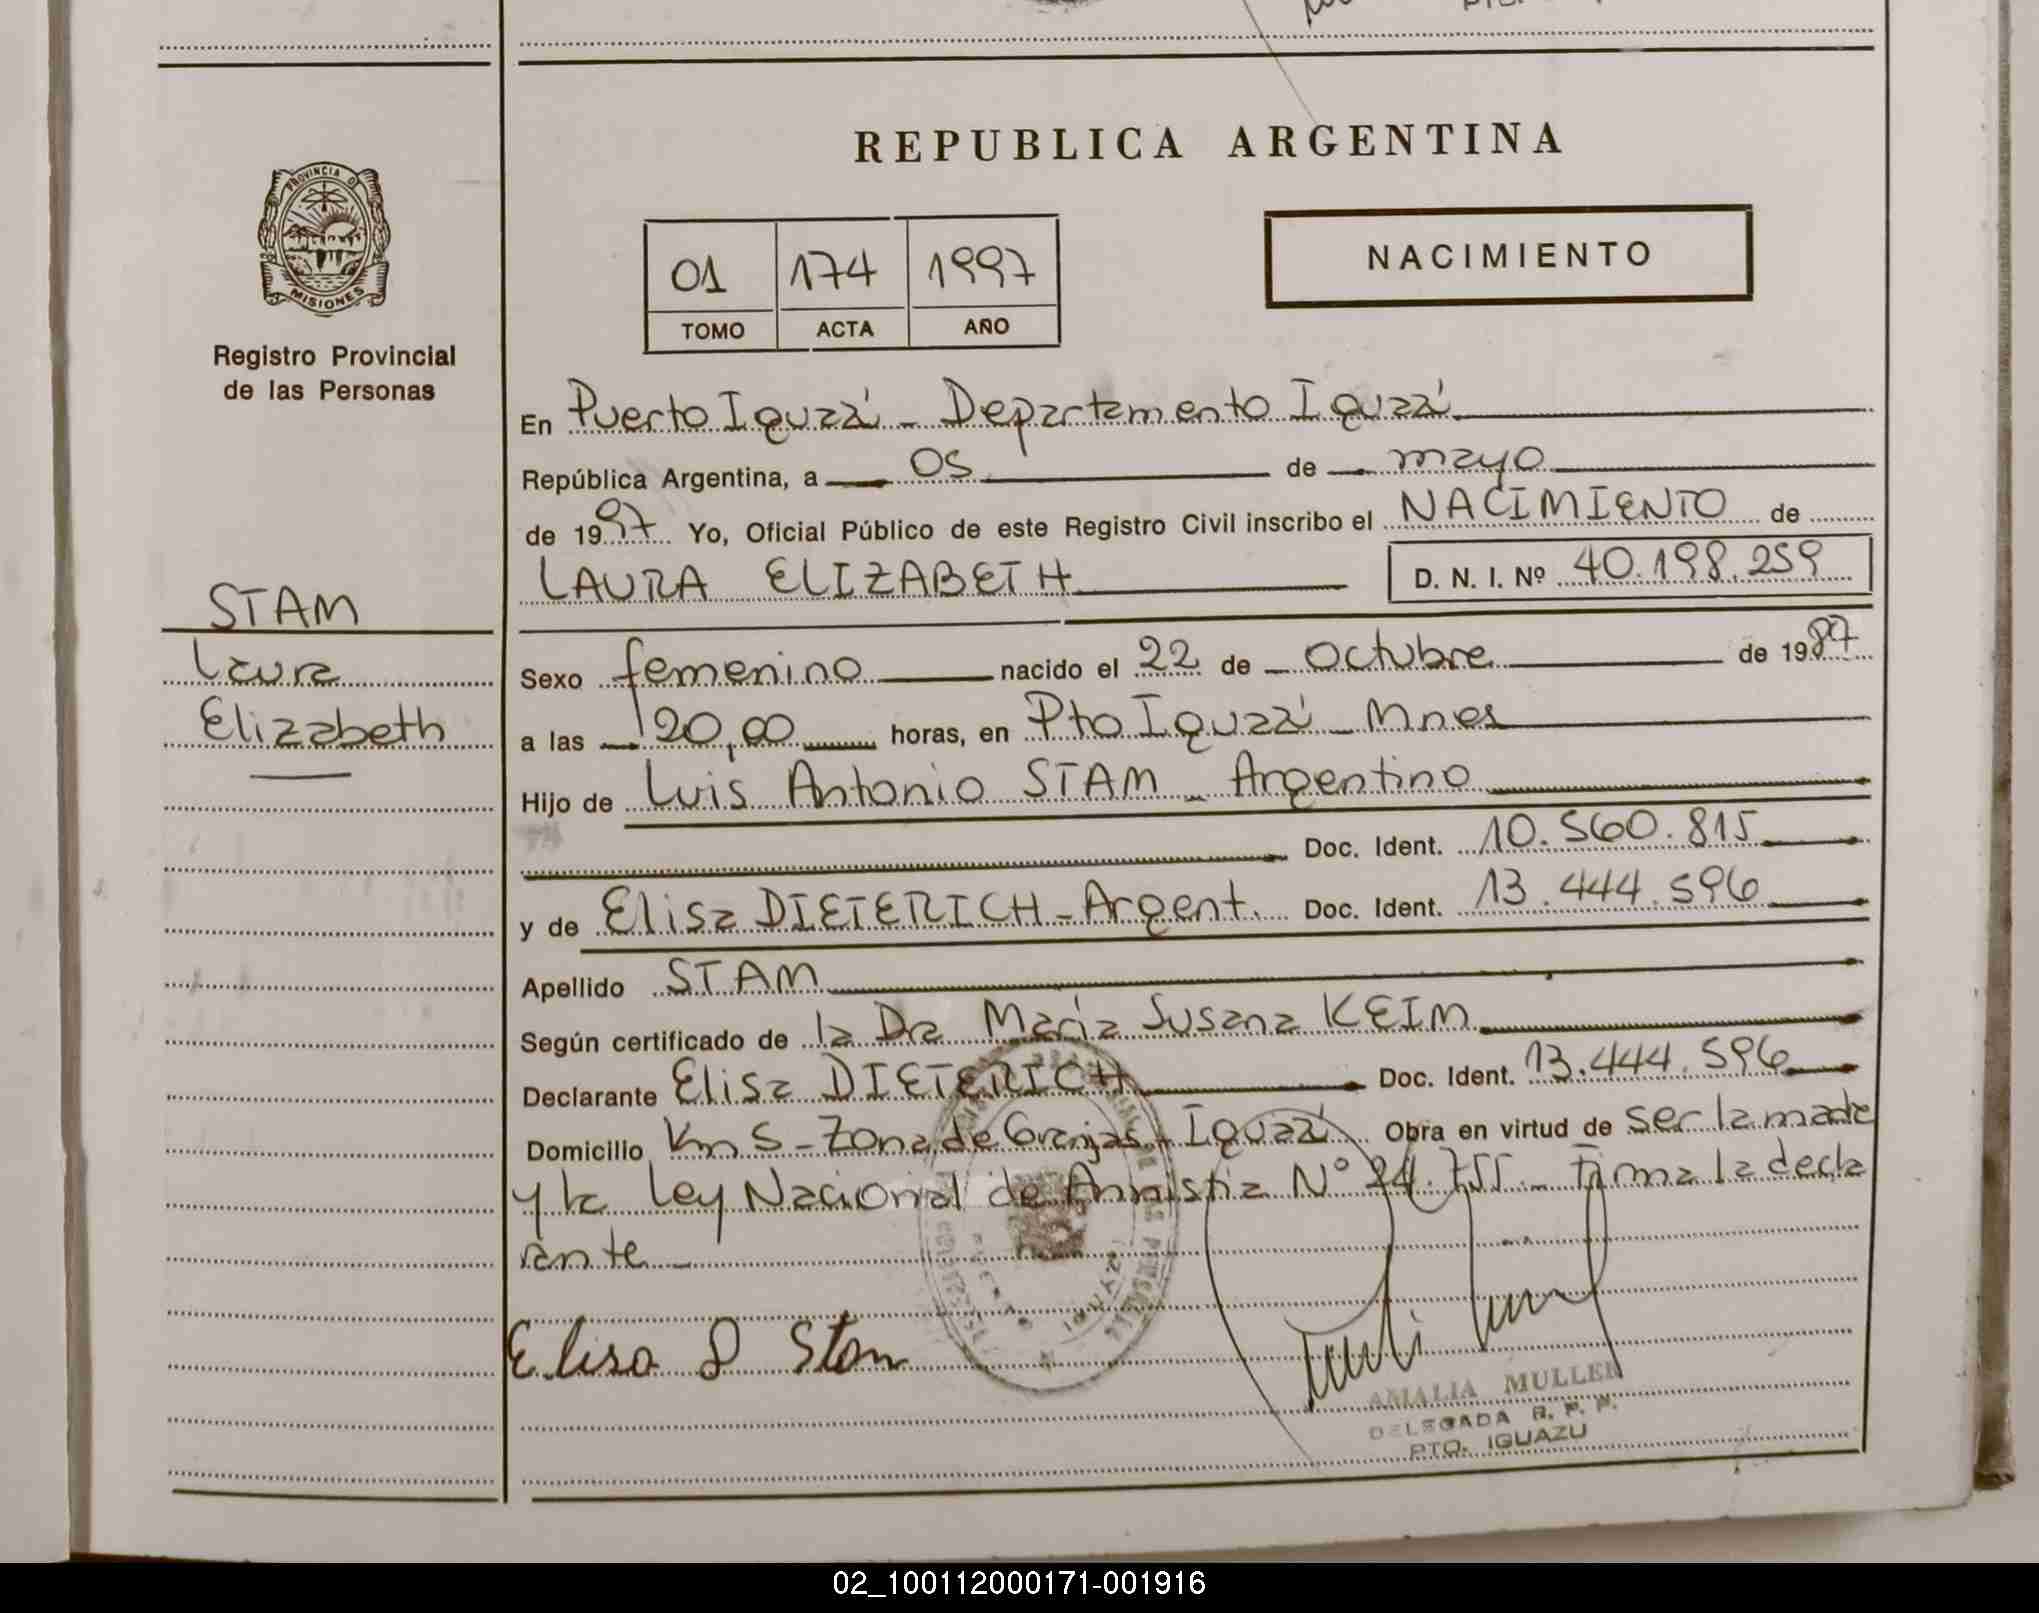 REPUBLICA ARGENTINA
PROVINCIA DE
MISIONES
Registro Provincial
de las Personas
01 174 1997
TOMO ACTA AÑO
NACIMIENTO
En Puerto Iguazú - Departamento Iguazú
República Argentina, a 05 de mayo
de 1997 Yo, Oficial Público de este Registro Civil inscribo el NACIMIENTO de
LAURA ELIZABETH D. N. I. Nº 40.198.259
STAM
Laura
Elizabeth
Sexo femenino nacido el 22 de octubre de 1987
a las 20,00 horas, en Pto Iguazú - Mnes
Hijo de Luis Antonio STAM - Argentino
Doc. Ident. 10.560.815
y de Elisa DIETERICH - Argent. Doc. Ident. 13.444.596
Apellido STAM
Según certificado de la Dra María Susana KEIM
Declarante Elisa DIETERICH Doc. Ident. 13.444.596
Domicilio Km 5 - Zona de Granjas - Iguazú Obra en virtud de ser la madre
y la Ley Nacional de Amnistia Nº 24.755.- Firma la decla
rante -
Elisa D Stam
AMALIA MULLER
DELEGADA R. P. P.
PTO. IGUAZU
02_100112000171-001916